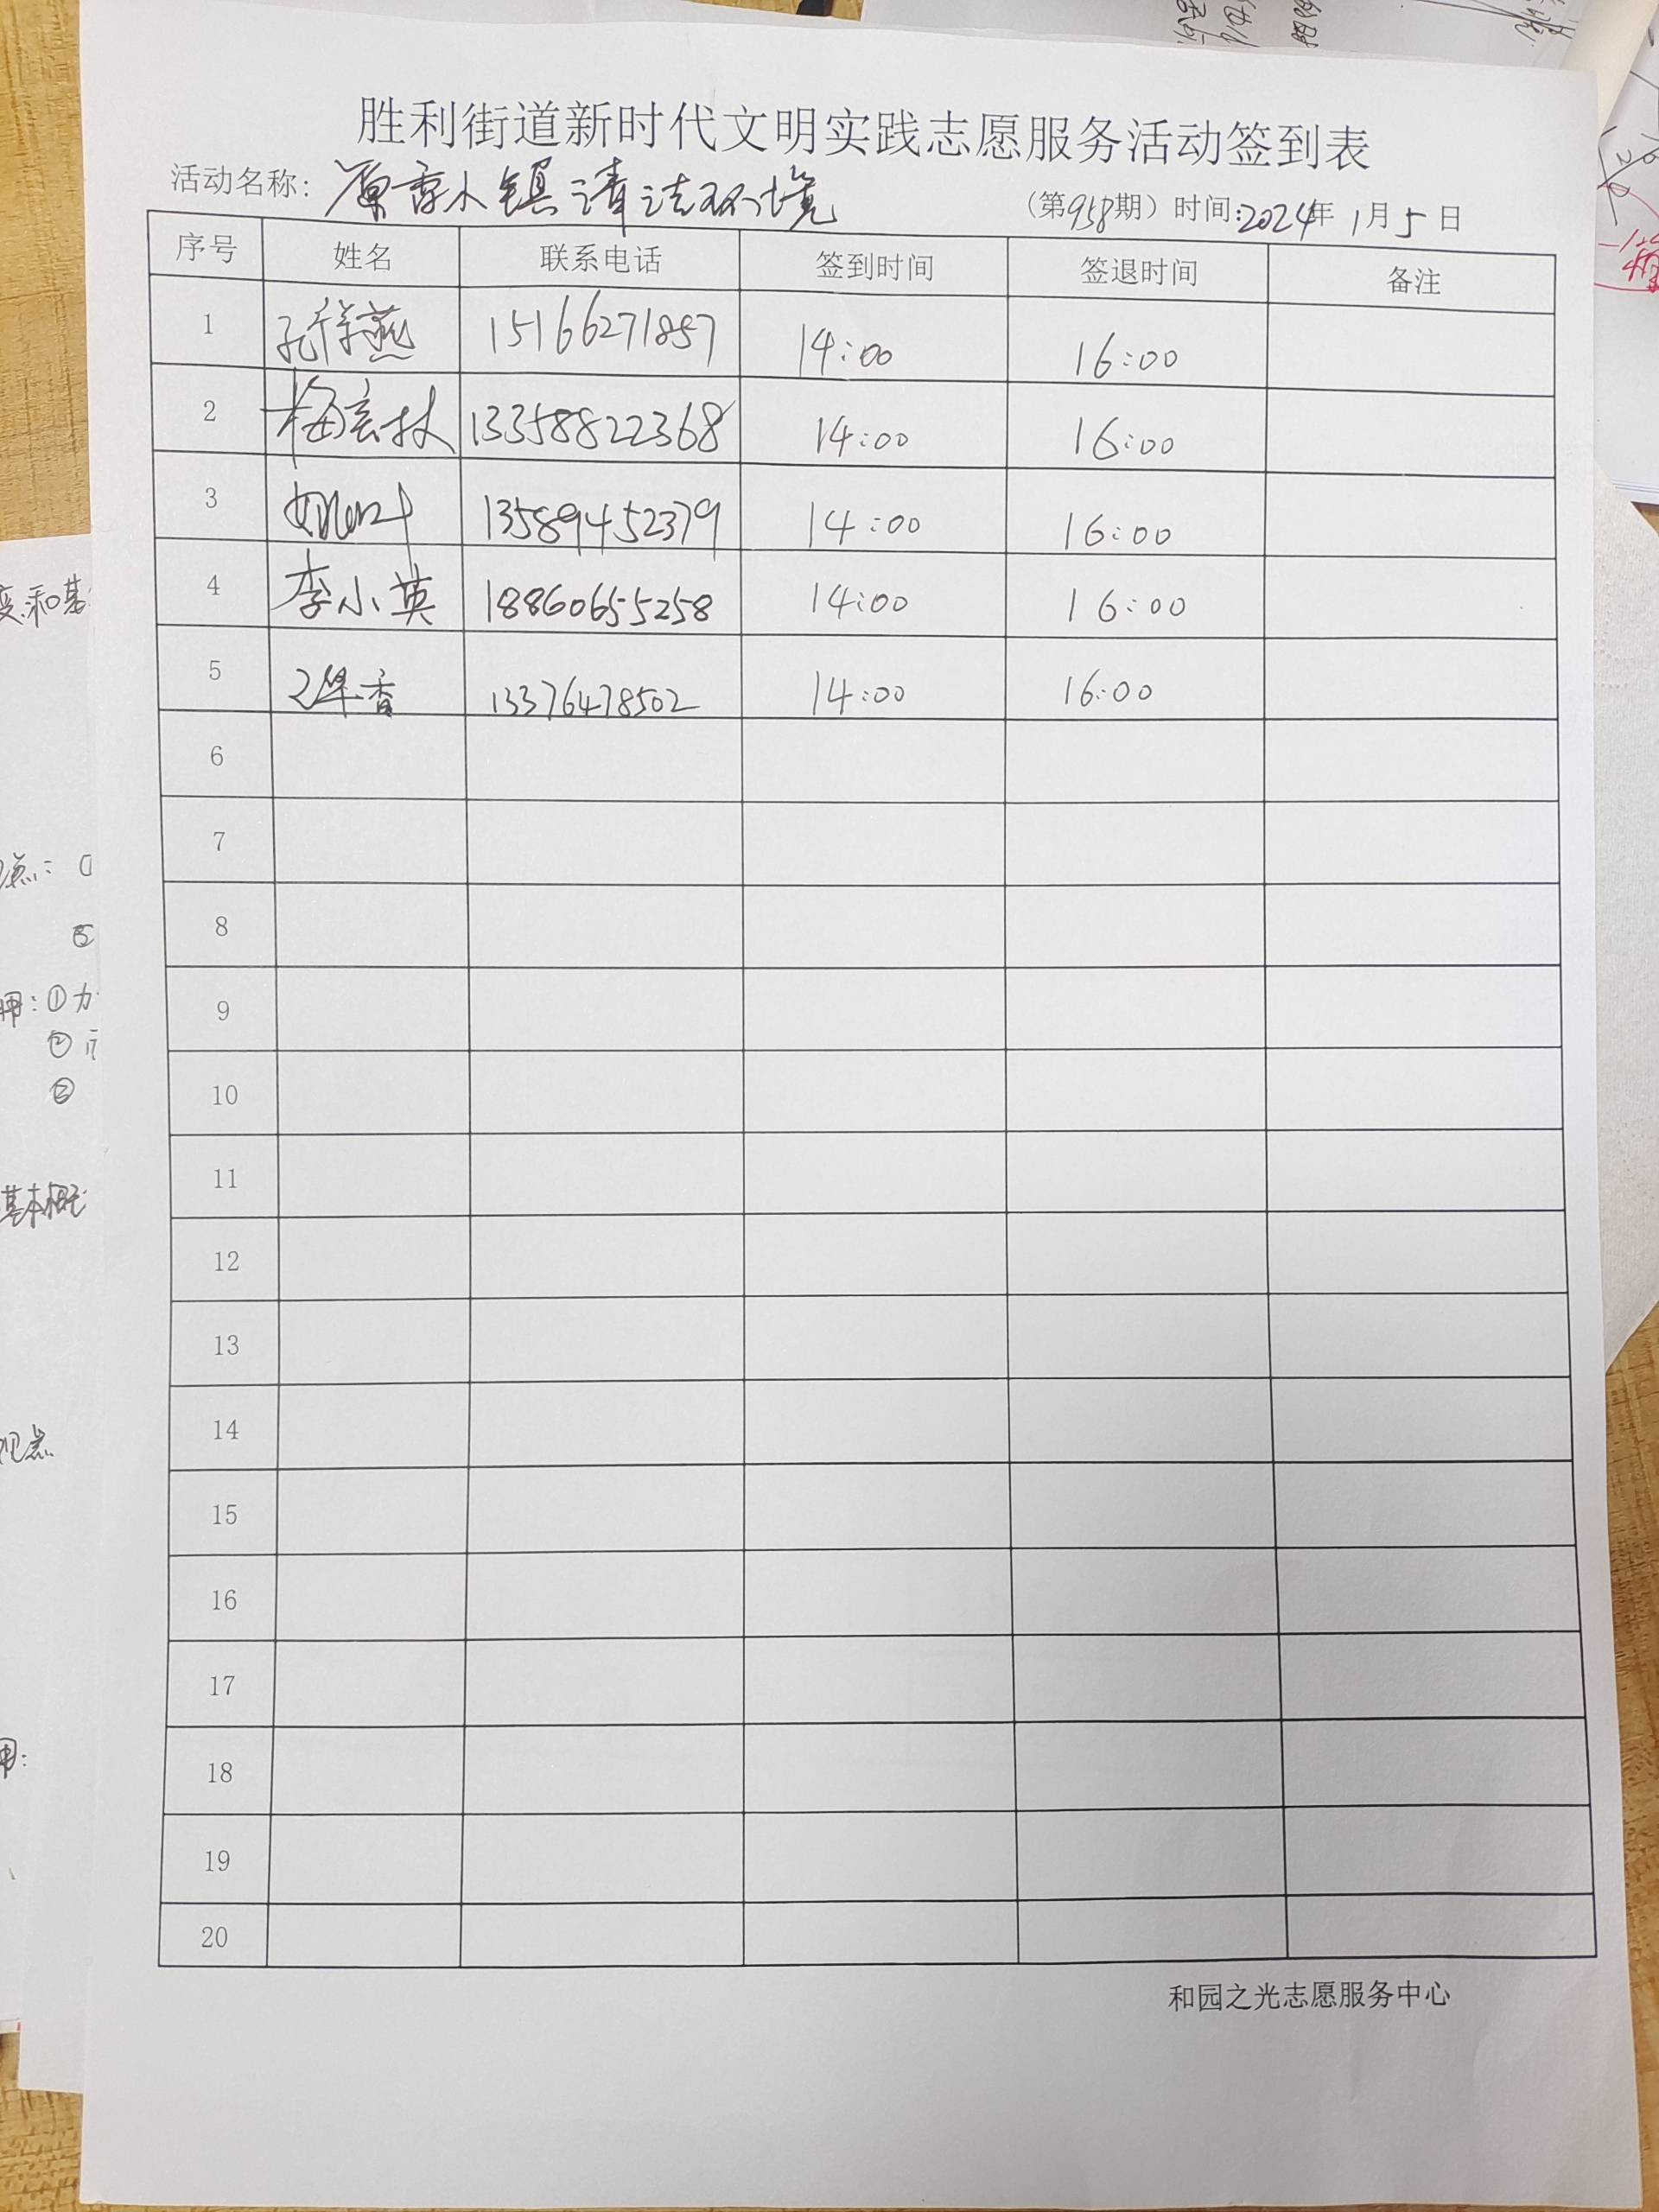 胜利街道新时代文明实践志愿服务活动签到表
活动名称: 康小镇清洁环境 (第958期) 时间:2024年1月5日
序号 姓名 联系电话 签到时间 签退时间 备注
1 孔祥燕 15166271857 14:00 16:00
2 梅林 13358822368 14:00 16:00
3 13589452379 14:00 16:00
4 李小英 18860655258 14:00 16:00
5 香 13376478502 14:00 16:00
6
7
8
9
10
11
12
13
14
15
16
17
18
19
20
和园之光志愿服务中心
基本概
观点